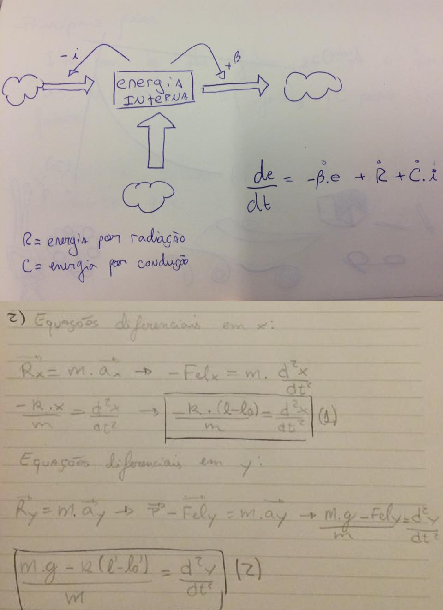 -i
+β
energia
INTERNA
de/dt = -β.e + Ṙ + Ċ.i
R = energia por radiação
C = energia por condução
2) Equações diferenciais em x:
Rx = m.ax → -Felx = m. d²x/dt²
-k.x/m = d²x/dt² → -k.(l-lo)/m = d²x/dt² (1)
Equações diferenciais em y:
Ry = m.ay → P - Fely = m.ay → m.g - Fely/m = d²y/dt²
m.g - k(l'-lo')/m = d²y/dt² (2)